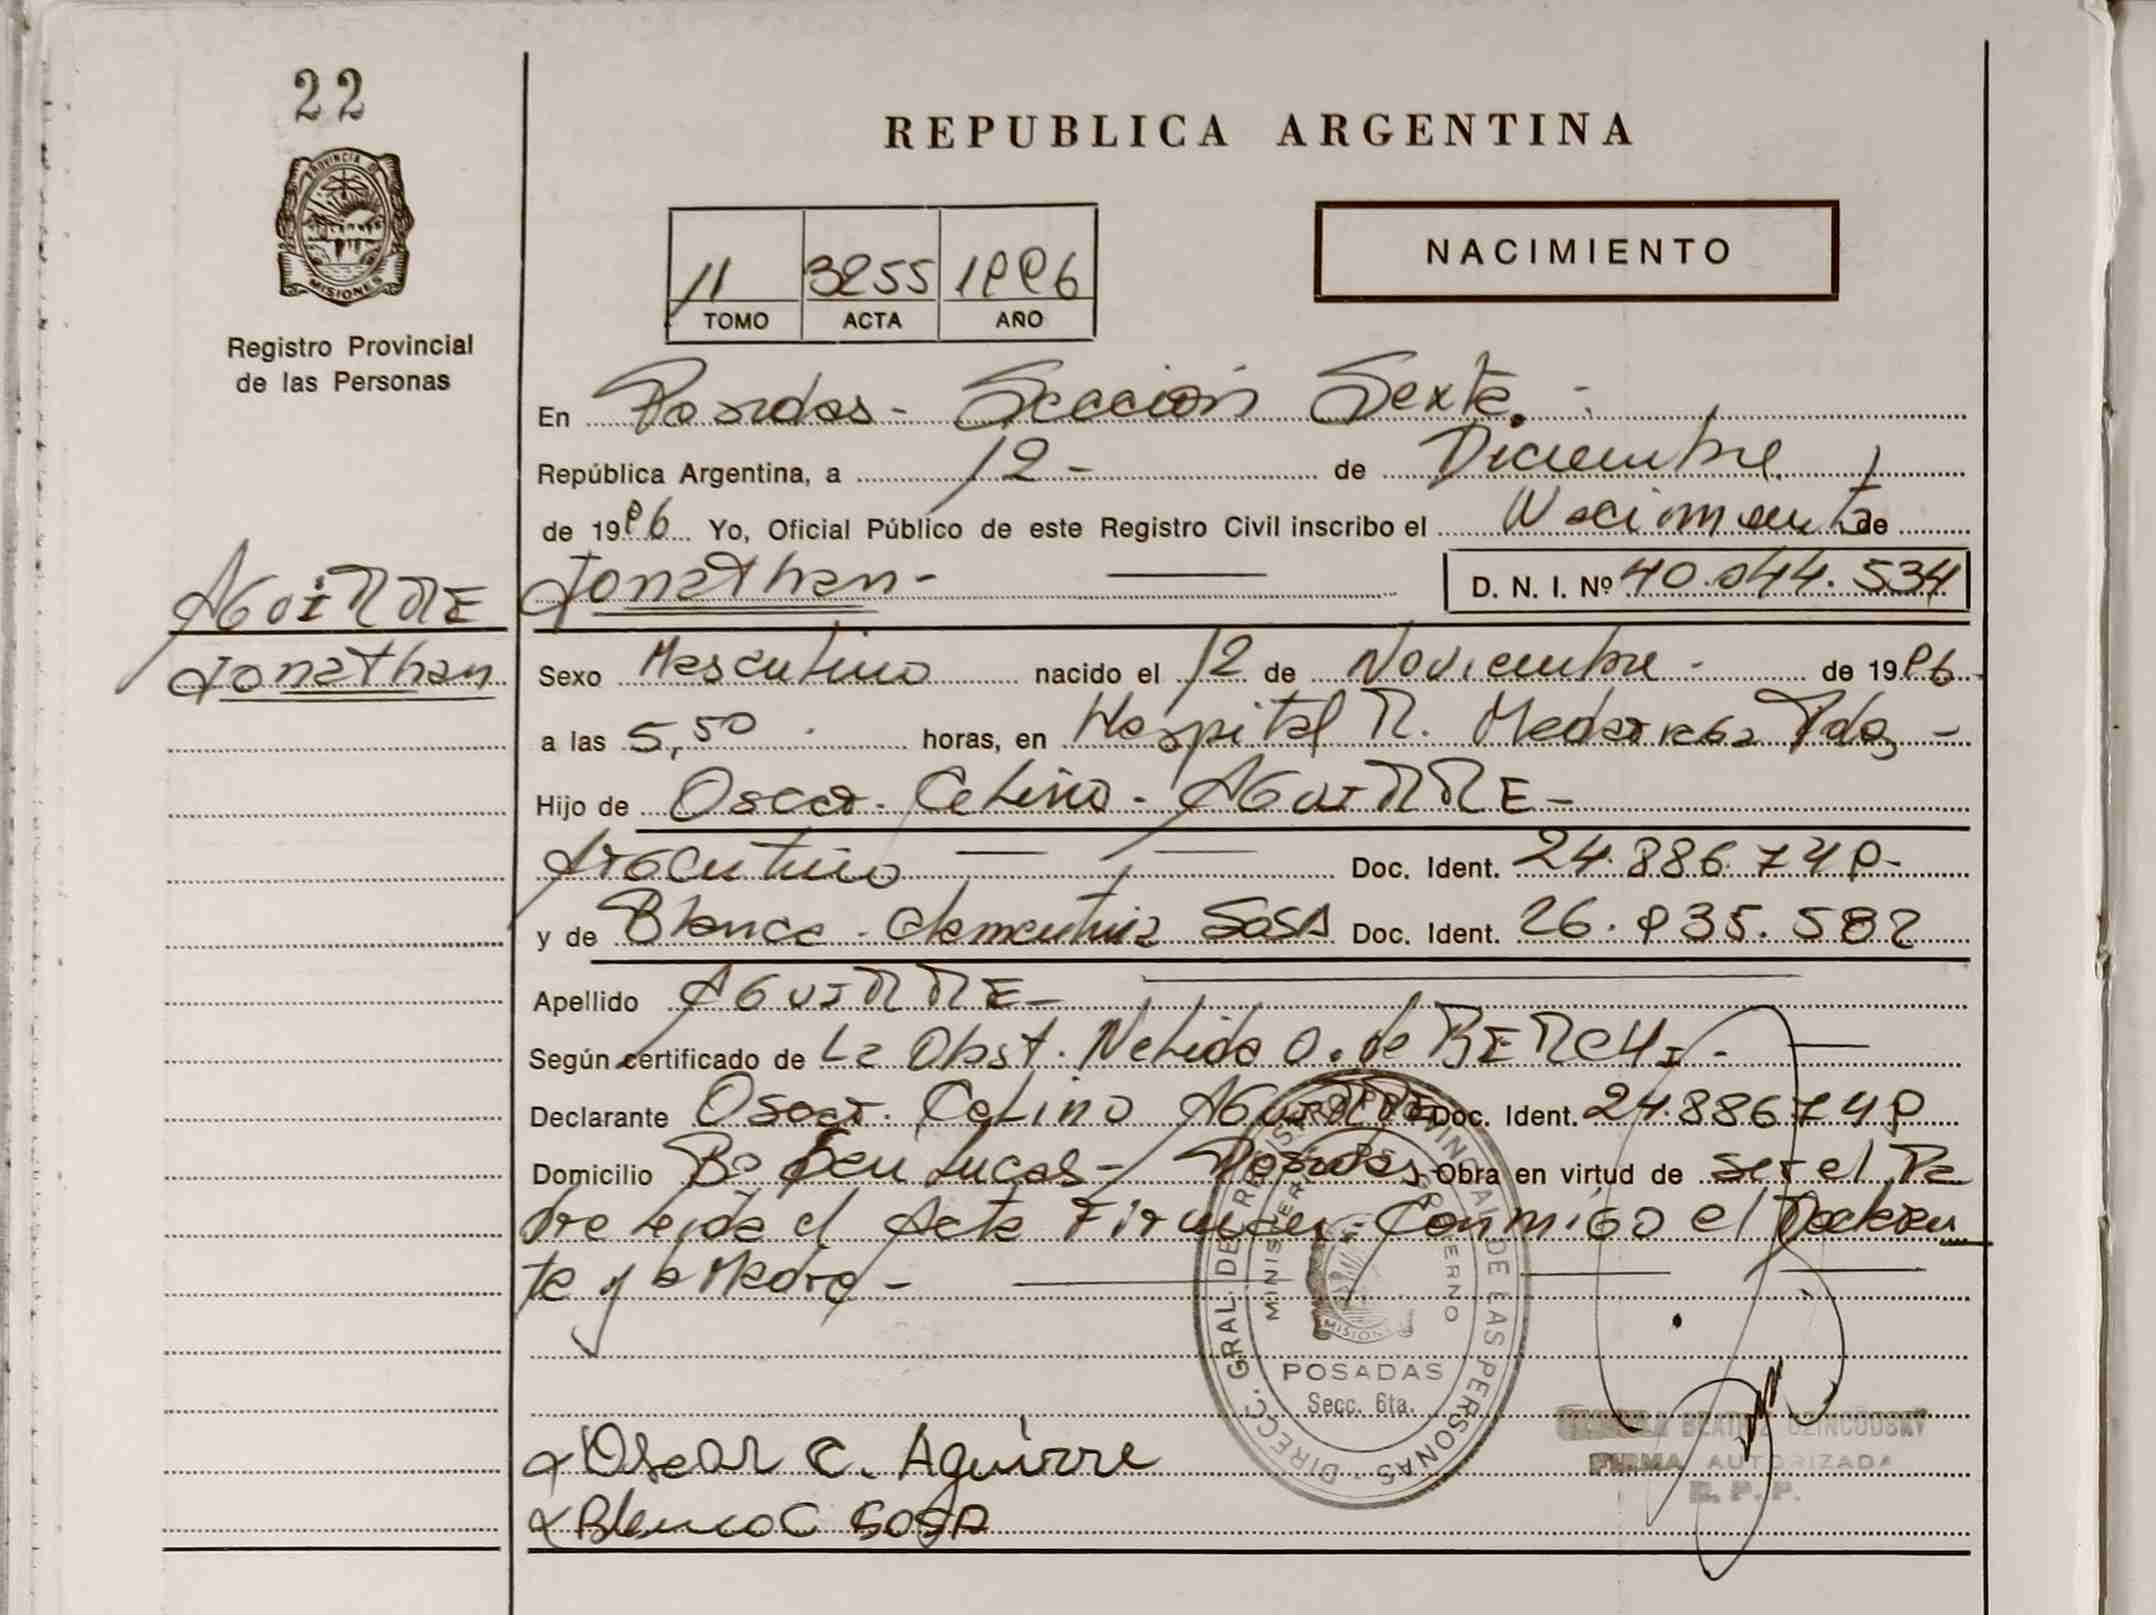 22
REPUBLICA ARGENTINA
PROVINCIA DE
MISIONES
Registro Provincial
de las Personas
NACIMIENTO
11 3255 1996
TOMO ACTA AÑO
En Posadas - Sección Sexta. -
República Argentina, a 12 - de Diciembre
de 1996 Yo, Oficial Público de este Registro Civil inscribo el Nacimiento de
AGUIRRE
Jonathan - D. N. I. Nº 40.044.534
Jonathan
Sexo Masculino nacido el 12 de Noviembre - de 1996 -
a las 5,50 horas, en Hospital R. Madariaga Pdas -
Hijo de Oscar - Celino - AGUIRRE -
Argentino Doc. Ident. 24.886.749 -
y de Blanca - Clementina SOSA Doc. Ident. 26.935.582
Apellido AGUIRRE -
Según certificado de La Obst. Nelida O. de BERCHI -
Declarante Oscar - Celino AGUIRRE Doc. Ident. 24.886749
Domicilio Bº San Lucas - Posadas - Obra en virtud de ser el Pa
dre leida el Acta Firman - Conmigo el Declaran
te y la Madre -
DIREC. GRAL. DE REGISTRO PROVINCIAL DE LAS PERSONAS
MINISTERIO DE GOBIERNO
MISIONES
POSADAS
Secc. 6ta.
BEATRIZ
FIRMA AUTORIZADA
R. P. P.
Oscar C. Aguirre
Blanca C SOSA